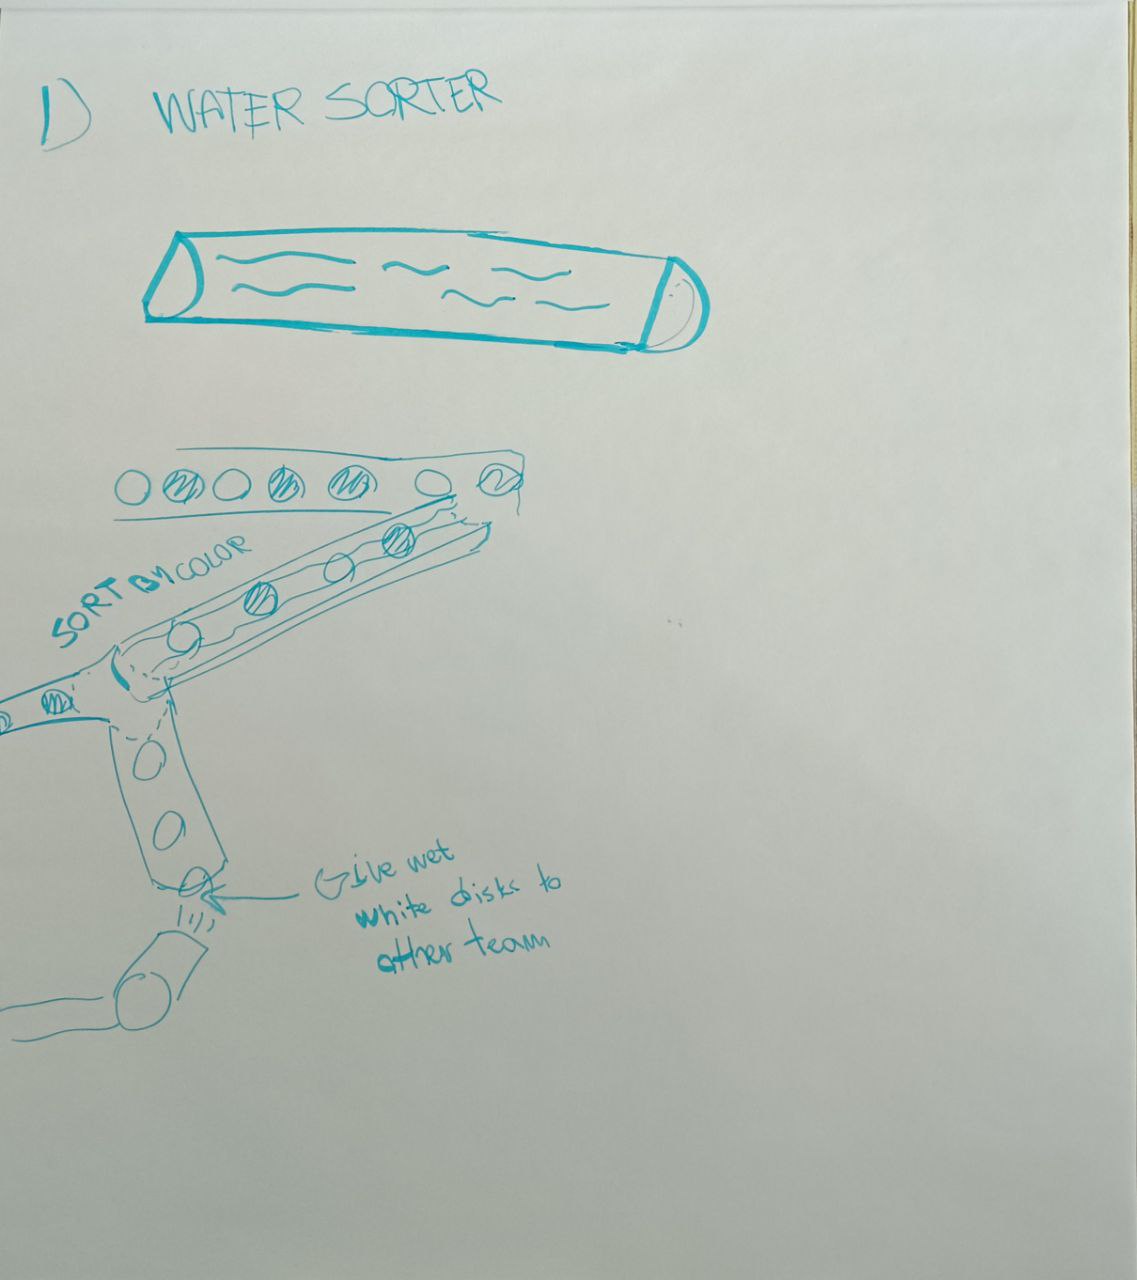 1) WATER SORTER
SORT BY COLOR
Give wet
white disks to
other team